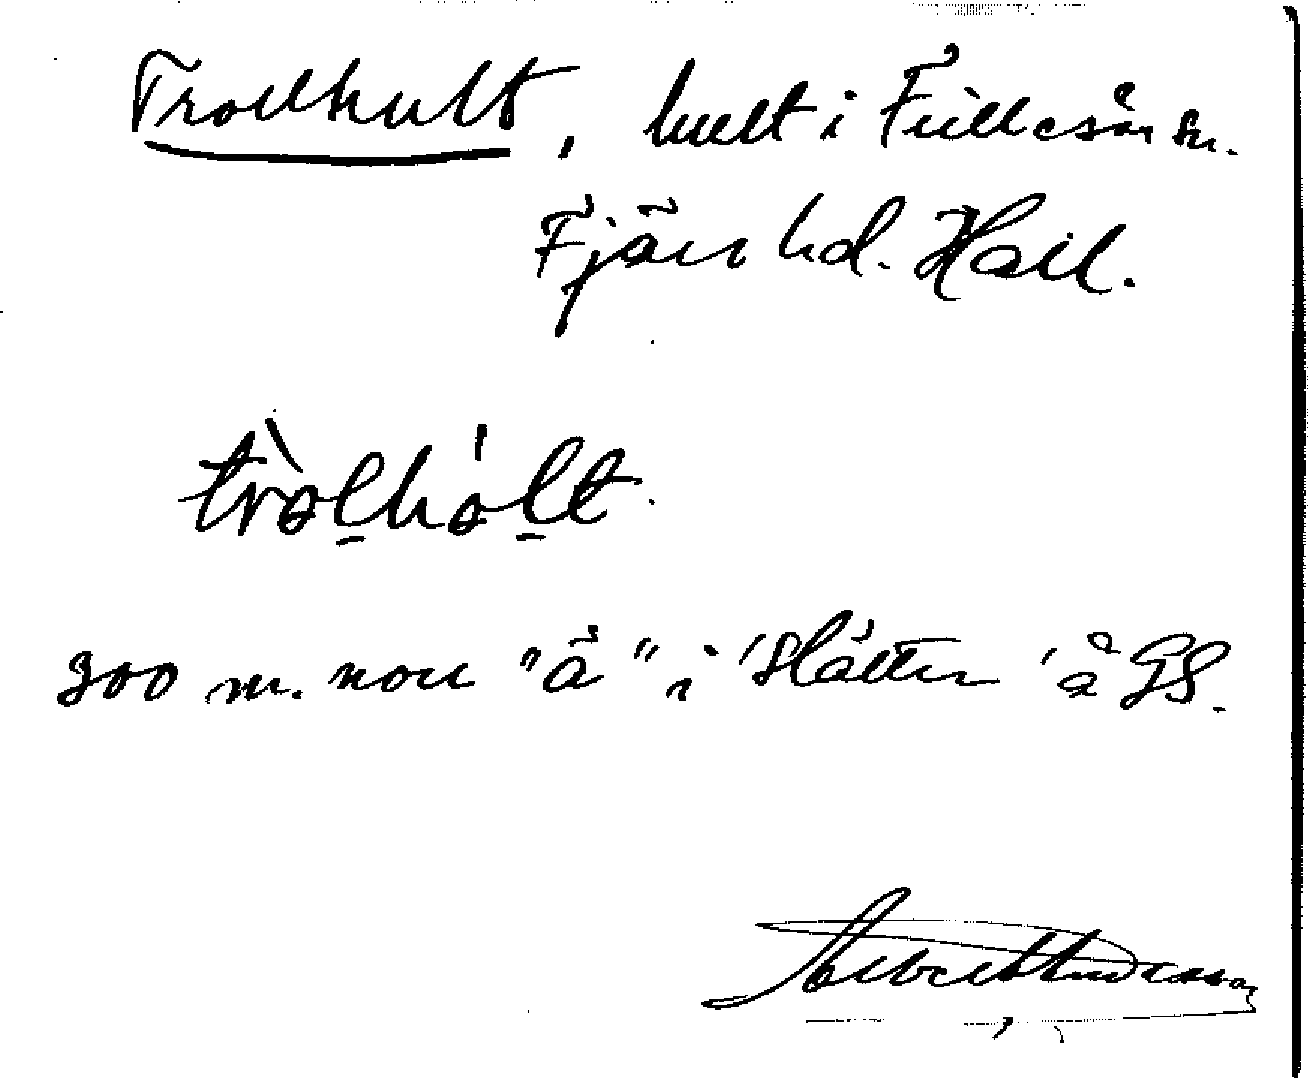 Trollhult, kuelt i Fjällesås sn.
Fjäre hd. Hall.
tròlhólt
300 m. norr "å" i 'Slätten' å GS.
Albert Andersson